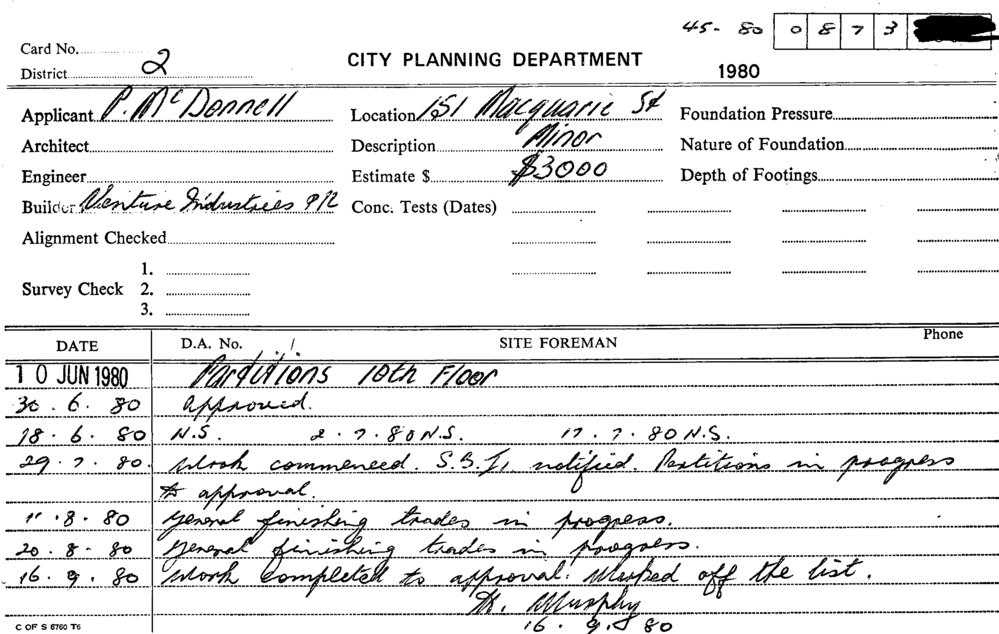 45-80 0873
Card No.
District 2
CITY PLANNING DEPARTMENT
1980
Applicant P. McDonnell
Location 151 Macquarie St
Foundation Pressure
Architect
Description Minor
Nature of Foundation
Engineer
Estimate $ $3000
Depth of Footings
Builder Venture Industries P/L
Conc. Tests (Dates)
Alignment Checked
Survey Check
1.
2.
3.
DATE D.A. No. SITE FOREMAN Phone
10 JUN 1980 Partitions 10th Floor
30.6.80 approved.
18.6.80 N.S. 2.7.80 N.S. 17.7.80 N.S.
29.7.80. Work commenced. S.B.I. notified. Partitions in progress
to approval.
11.8.80 General finishing trades in progress.
20.8.80 General finishing trades in progress.
16.9.80 Work completed to approval. Marked off the list.
Murphy
16.9.80
C OF S 6760 T6